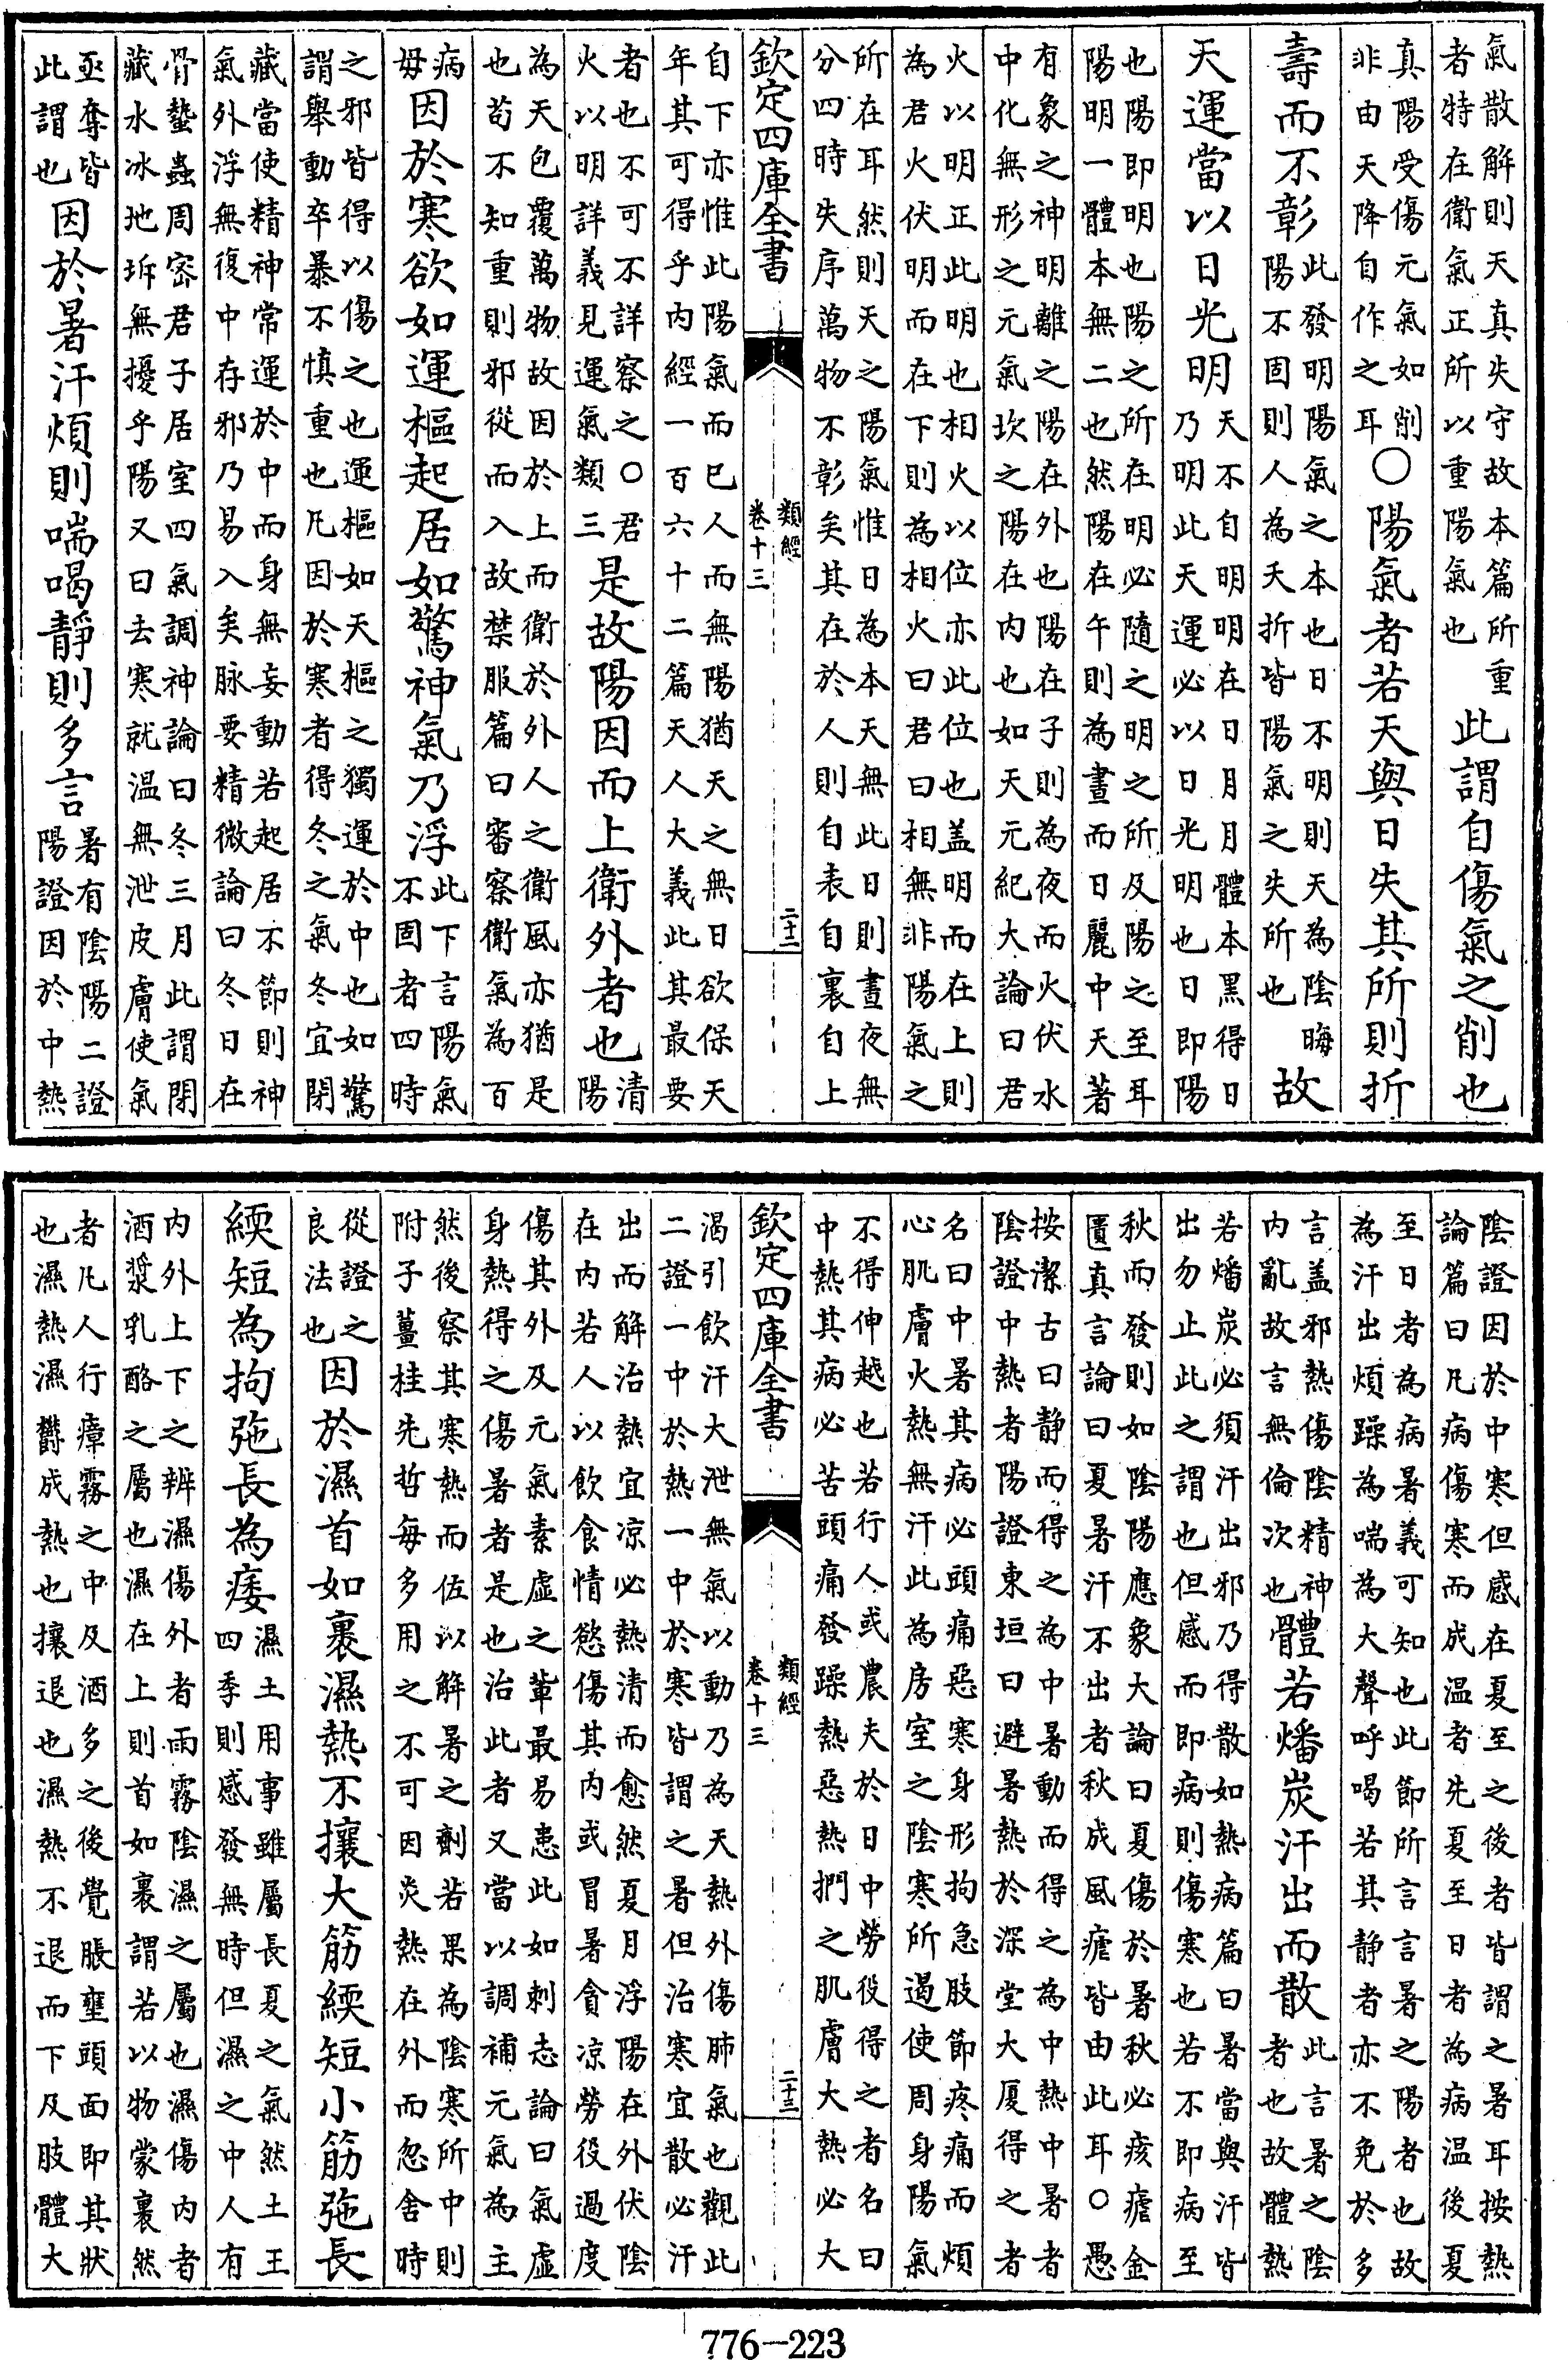 氣散解則天真失守故本篇所重者特在衛氣正所以重陽氣也此謂自傷氣之削也
真陽受傷元氣如削非由天降自作之耳〇陽氣者若天與日失其所則折
壽而不彰此發明陽氣之本也日不明則天為陰晦陽不固則人為夭折皆陽氣之失所也故
天運當以日光明天不自明明在日月月體本黑得日乃明此天運必以日光明也日即陽
也陽即明也陽之所在明必隨之明之所及陽之至耳陽明一體本無二也然陽在午則為晝而日麗中天著
有象之神明離之陽在外也陽在子則為夜而火伏水中化無形之元氣坎之陽在内也如天元紀大論曰君
火以明正此明也相火以位亦此位也盖明而在上則為君火伏明而在下則為相火曰君曰相無非陽氣之
所在耳然則天之陽氣惟日為本天無此日則晝夜無分四時失序萬物不彰矣其在於人則自表自裏自上
欽定四庫全書 類經 卷十三 二十二
自下亦惟此陽氣而已人而無陽猶天之無日欲保天年其可得乎内經一百六十二篇天人大義此其最要
者也不可不詳察之〇君火以明詳義見運氣類三是故陽因而上衛外者也清陽
為天包覆萬物故因於上而衛於外人之衛風亦猶是也苟不知重則邪從而入故禁服篇曰審察衛氣為百
病毋因於寒欲如運樞起居如驚神氣乃浮此下言陽氣不固者四時
之邪皆得以傷之也運樞如天樞之獨運於中也如驚謂舉動卒暴不慎重也凡因於寒者得冬之氣冬宜閉
藏當使精神常運於中而身無妄動若起居不節則神氣外浮無復中存邪乃易入矣脉要精微論曰冬日在
骨蟄蟲周密君子居室四氣調神論曰冬三月此謂閉藏水冰地坼無擾乎陽又曰去寒就温無泄皮膚使氣
亟奪皆此謂也因於暑汗煩則喘喝靜則多言暑有陰陽二證陽證因於中熱
陰證因於中寒但感在夏至之後者皆謂之暑耳按熱論篇曰凡病傷寒而成温者先夏至日者為病温後夏
至日者為病暑義可知也此節所言言暑之陽者也故為汗出煩躁為喘為大聲呼喝若其静者亦不免於多
言盖邪熱傷陰精神内亂故言無倫次也體若燔炭汗出而散此言暑之陰者也故體熱
若燔炭必須汗出邪乃得散如熱病篇曰暑當與汗皆出勿止此之謂也但感而即病則傷寒也若不即病至
秋而發則如陰陽應象大論曰夏傷於暑秋必痎瘧金匱真言論曰夏暑汗不出者秋成風瘧皆由此耳〇愚
按潔古曰静而得之為中暑動而得之為中熱中暑者陰證中熱者陽證東垣曰避暑熱於深堂大厦得之者
名曰中暑其病必頭痛惡寒身形拘急肢節疼痛而煩心肌膚火熱無汗此為房室之陰寒所遏使周身陽氣
不得伸越也若行人或農夫於日中勞役得之者名曰中熱其病必苦頭痛發躁熱惡熱捫之肌膚大熱必大
欽定四庫全書 類經 卷十三 二十三
渴引飲汗大泄無氣以動乃為天熱外傷肺氣也觀此二證一中於熱一中於寒皆謂之暑但治寒宜散必汗
出而解治熱宜凉必熱清而愈然夏月浮陽在外伏陰在内若人以飲食情慾傷其内或冒暑貪凉勞役過度
傷其外及元氣素虛之輩最易患此如刺志論曰氣虛身熱得之傷暑者是也治此者又當以調補元氣為主
然後察其寒熱而佐以解暑之劑若果為陰寒所中則附子薑桂先哲每多用之不可因炎熱在外而忽舍時
從證之良法也因於濕首如裹濕熱不攘大筋緛短小筋弛長
緛短為拘弛長為痿濕土用事雖屬長夏之氣然土王四季則感發無時但濕之中人有
内外上下之辨濕傷外者雨霧陰濕之屬也濕傷内者酒漿乳酪之屬也濕在上則首如裹謂若以物蒙裹然
者凡人行瘴霧之中及酒多之後覺脹壅頭面即其狀也濕熱濕欝成熱也攘退也濕熱不退而下及肢體大
776-223